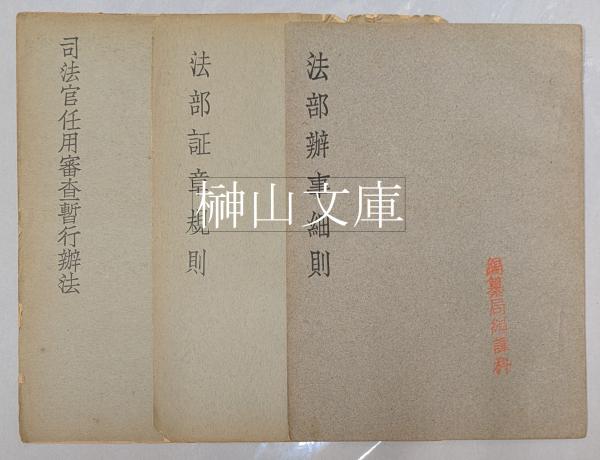 法部辦事細則
法部証章規則
司法官任用審查暫行辦法
榊山文庫
編纂局編譯科